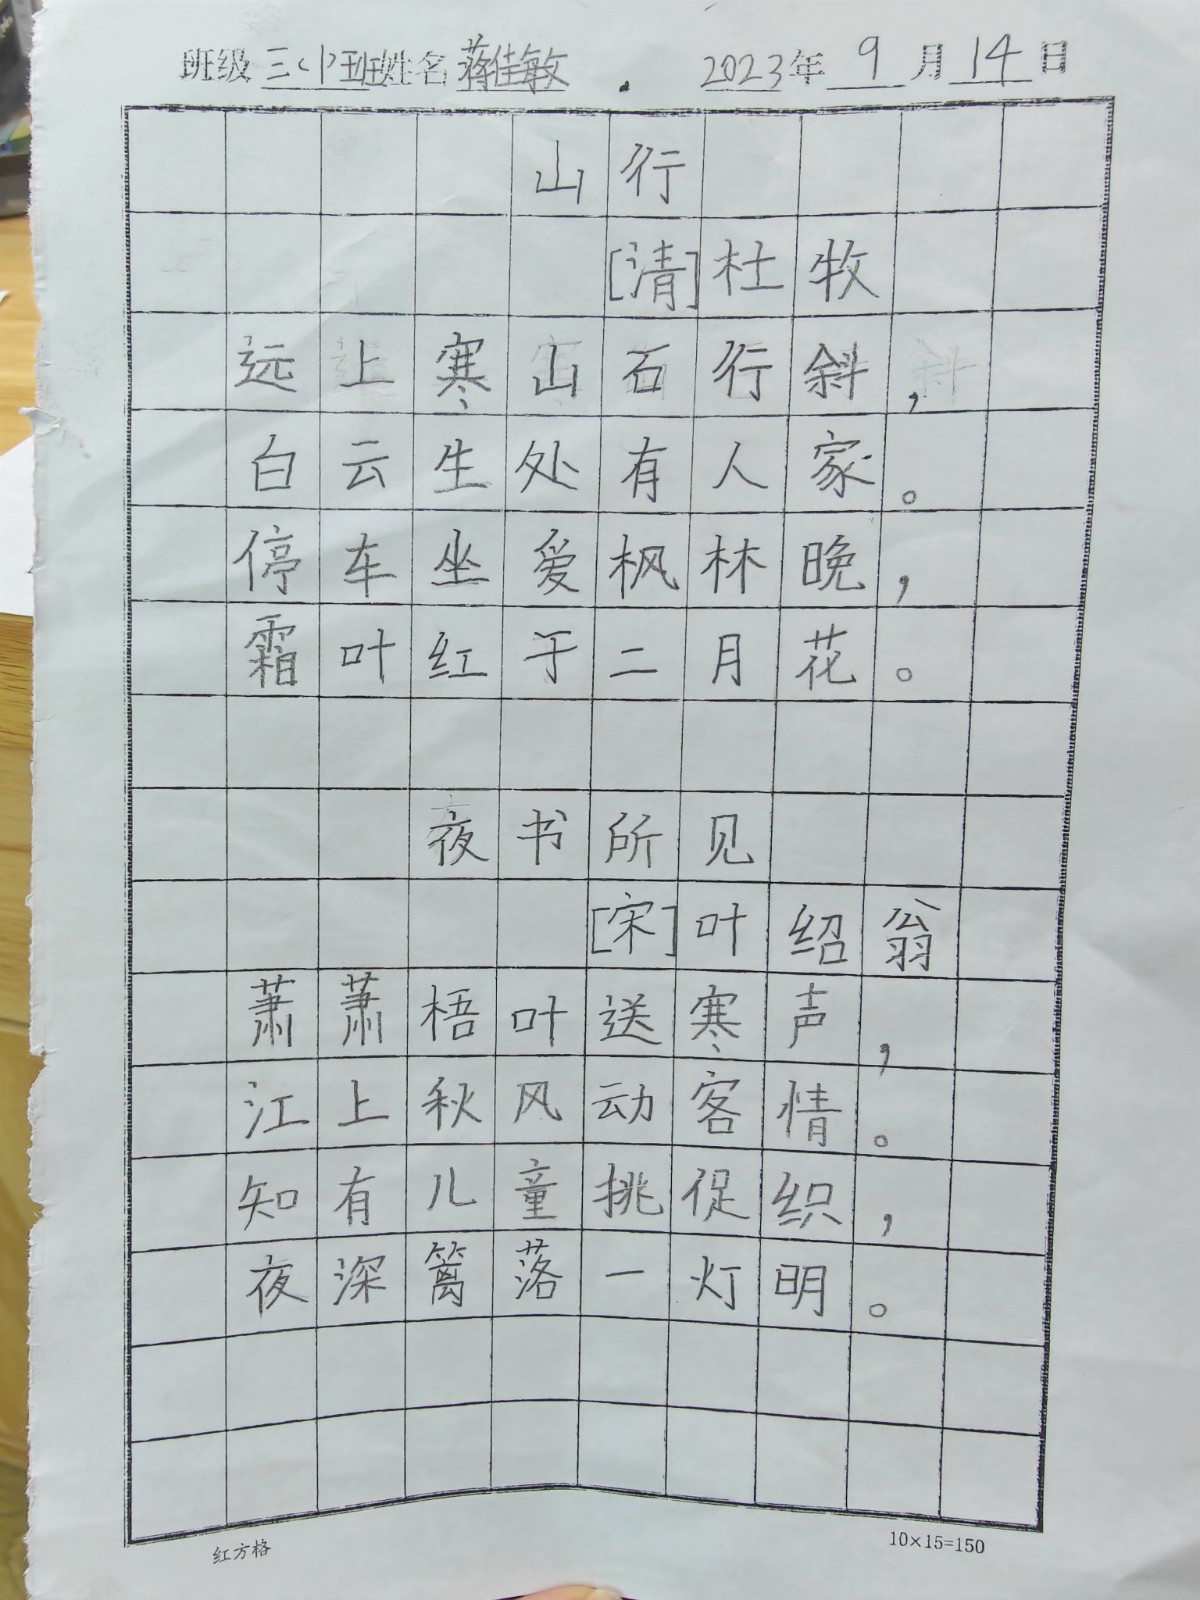 班级三(1)班姓名蒋佳敏. 2023年9月14日
山行
[清]杜牧
远上寒山石行斜，
白云生处有人家。
停车坐爱枫林晚，
霜叶红于二月花。
夜书所见
[宋]叶绍翁
萧萧梧叶送寒声，
江上秋风动客情。
知有儿童挑促织，
夜深篱落一灯明。
红方格 10×15=150